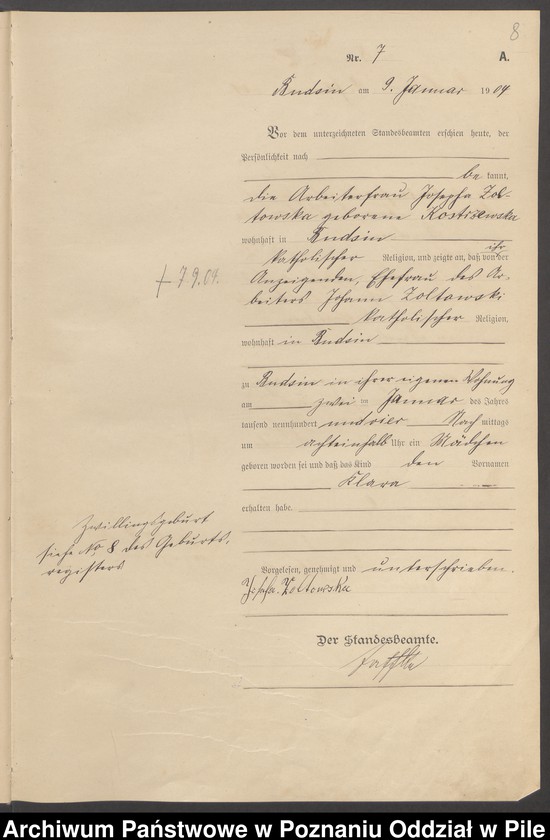 8
Nr. 7 A.
Budsin am 9. Januar 1904
Vor dem unterzeichneten Standesbeamten erschien heute, der
Persönlichkeit nach
be kannt,
die Arbeiterfrau Josepha Zol-
towska geborene Kostizewska
wohnhaft in Budsin
katholischer Religion, und zeigte an, daß von der ihr
Anzeigenden, Ehefrau des Ar-
beiters Johann Zoltowski
katholischer Religion,
wohnhaft in Budsin
zu Budsin in ihrer eigenen Wohnung
am zwei ten Januar des Jahres
tausend neunhundert und vier Nach mittags
um achteinhalb Uhr ein Mädchen
geboren worden sei und daß das Kind den Vornamen
Klara
erhalten habe.
† 7.9.04.
Zwillingsgeburt
siehe No 8 des Geburts-
registers
Vorgelesen, genehmigt und unterschrieben.
Josefa Zoltowska
Der Standesbeamte.
Archiwum Państwowe w Poznaniu Oddział w Pile